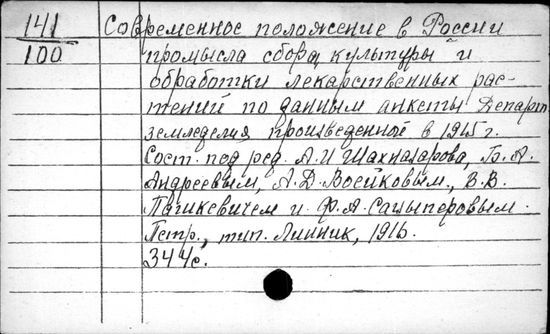 141 Современное положение в России
100 промысла сбора, культуры и
обработки лекарственных рас-
тений по данным анкеты Департ.
земледелия произведенной в 1915 г.
Сост. под ред. А.И Шахназарова, Б.А.
Андреевым, А.Д. Воейковым., В.В.
Пашкевичем и Ф.А. Сацыперовым.
Петр., тип. Линник, 1916.
344с.